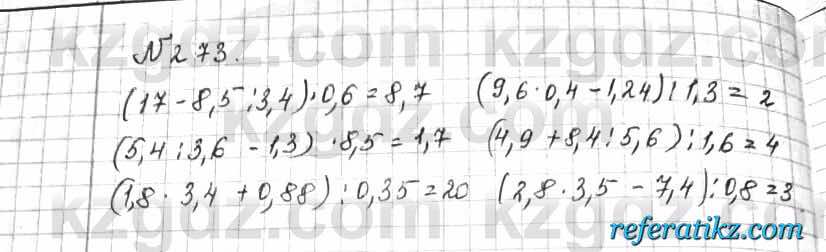 N273.
(17 - 8,5 : 3,4) · 0,6 = 8,7 (9,6 · 0,4 - 1,24) : 1,3 = 2
(5,4 : 3,6 - 1,3) · 8,5 = 1,7 (4,9 + 8,4 : 5,6) : 1,6 = 4
(1,8 · 3,4 + 0,88) : 0,35 = 20 (2,8 · 3,5 - 7,4) : 0,8 = 3
referatikz.com
kzgdz.com